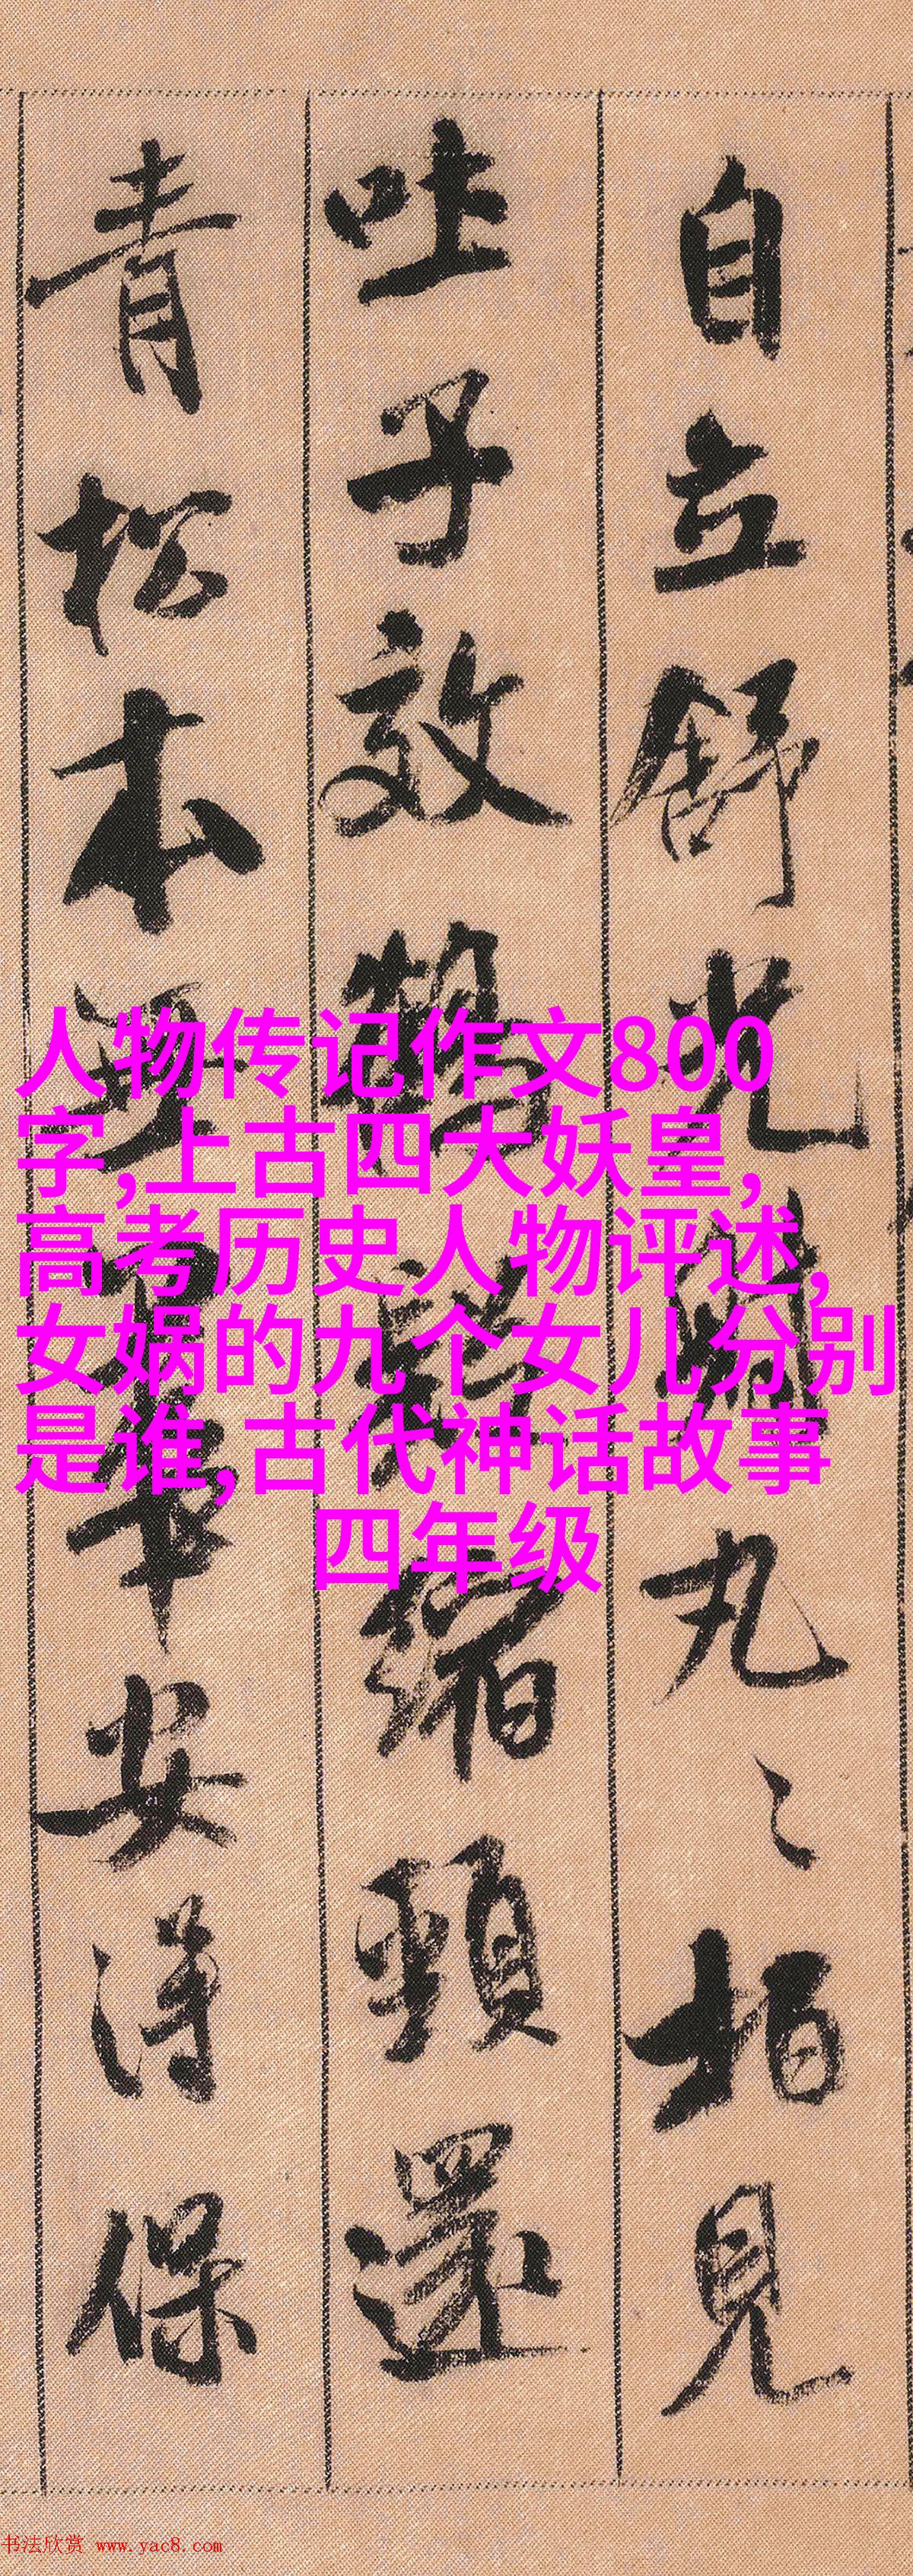 自立舒光射丸〻柏見
吐子效鶴疑縮頸還
青松本無華安得保
人物传记作文800
字,上古四大妖皇,
高考历史人物评述,
女娲的九个女儿分别
是谁,古代神话故事
四年级
书法欣赏 www.yac8.com